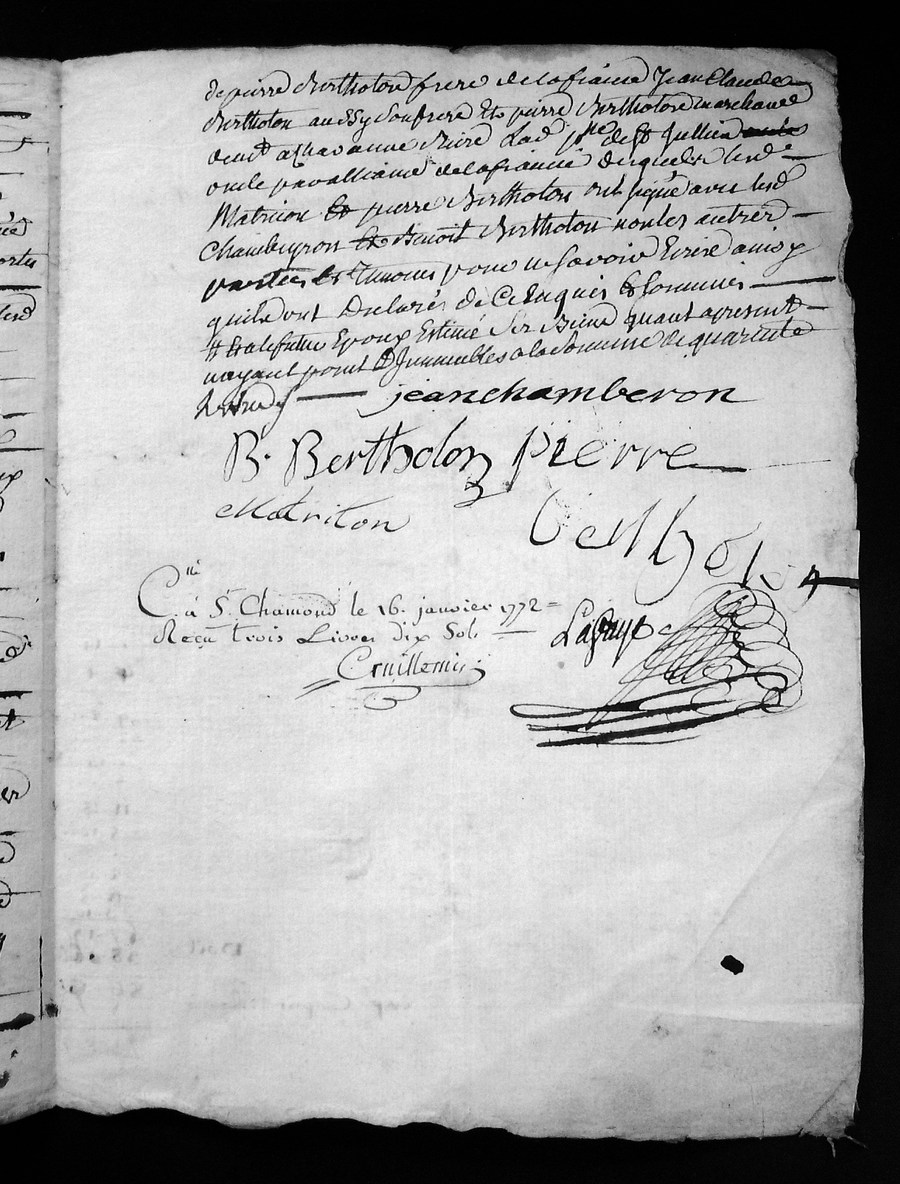 de pierre Bertholon frere de la fiancé Jean Claude
Bertholon aussy son frere Et pierre Bertholon marchand
demt a Chavanne Riere Lad psse de St Jullien
oncle pavalliainé de la fiancée desquels lesd
Matricon Et pierre Bertholon ont signé avec led
Chambeyron Et Benoit Bertholon non les autres
parties Et Temoins pour ne savoir Ecrire ainsy
quils ont Declarés de Ce Enquis Et sommés
Et Ca le futur Epoux Estimé Ses Biens quant a present
nayant point D'Immeubles a la somme de quarente
Livres
jean chamberon
B. Bertholon pierre
Matriton
Bertholon
C.lé à St Chamond le 16. janvier 1772 =
Reçu trois Livres dix Sols
Lafaye